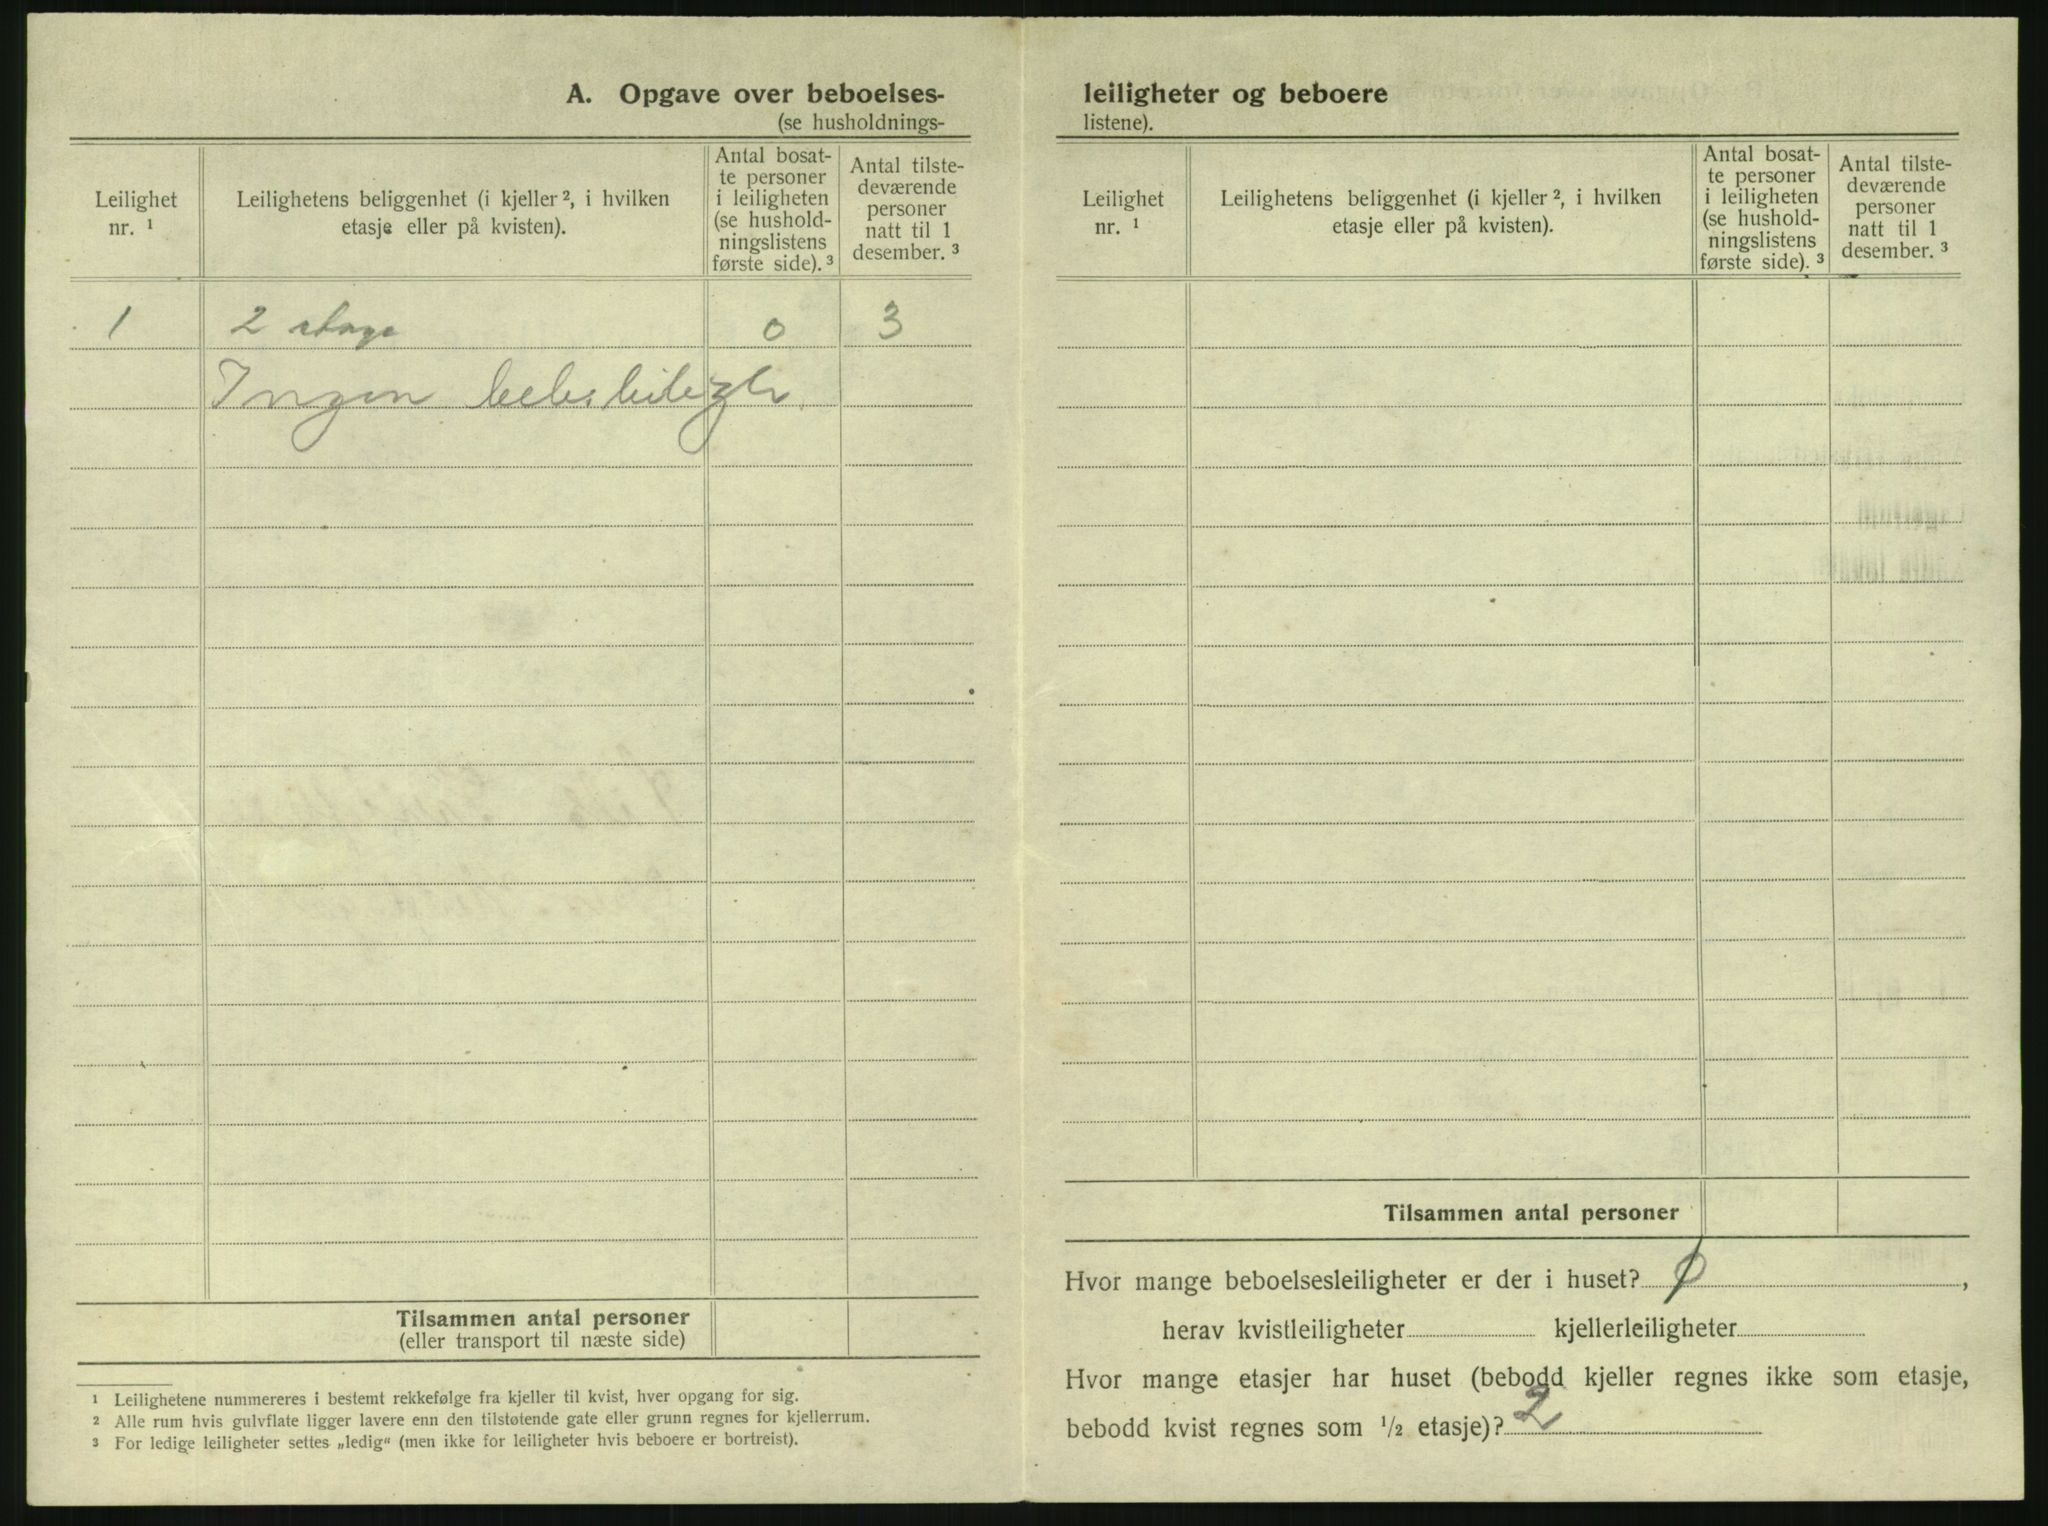 A. Opgave over beboelses-
(se husholdnings-
Leilighet
nr. ¹
Leilighetens beliggenhet (i kjeller ², i hvilken
etasje eller på kvisten).
Antal bosat-
te personer
i leiligheten
(se hushold-
ningslistens
første side). ³
Antal tilste-
deværende
personer
natt til 1
desember. ³
1 2 etage 0 3
Ingen beb.leilegh.
Tilsammen antal personer
(eller transport til næste side)
¹ Leilighetene nummereres i bestemt rekkefølge fra kjeller til kvist, hver opgang for sig.
² Alle rum hvis gulvflate ligger lavere enn den tilstøtende gate eller grunn regnes for kjellerrum.
³ For ledige leiligheter settes „ledig“ (men ikke for leiligheter hvis beboere er bortreist).
leiligheter og beboere
listene).
Leilighet
nr. ¹
Leilighetens beliggenhet (i kjeller ², i hvilken
etasje eller på kvisten).
Antal bosat-
te personer
i leiligheten
(se hushold-
ningslistens
første side). ³
Antal tilste-
deværende
personer
natt til 1
desember. ³
Tilsammen antal personer
Hvor mange beboelsesleiligheter er der i huset? 0,
herav kvistleiligheter kjellerleiligheter
Hvor mange etasjer har huset (bebodd kjeller regnes ikke som etasje,
bebodd kvist regnes som ½ etasje)? 2